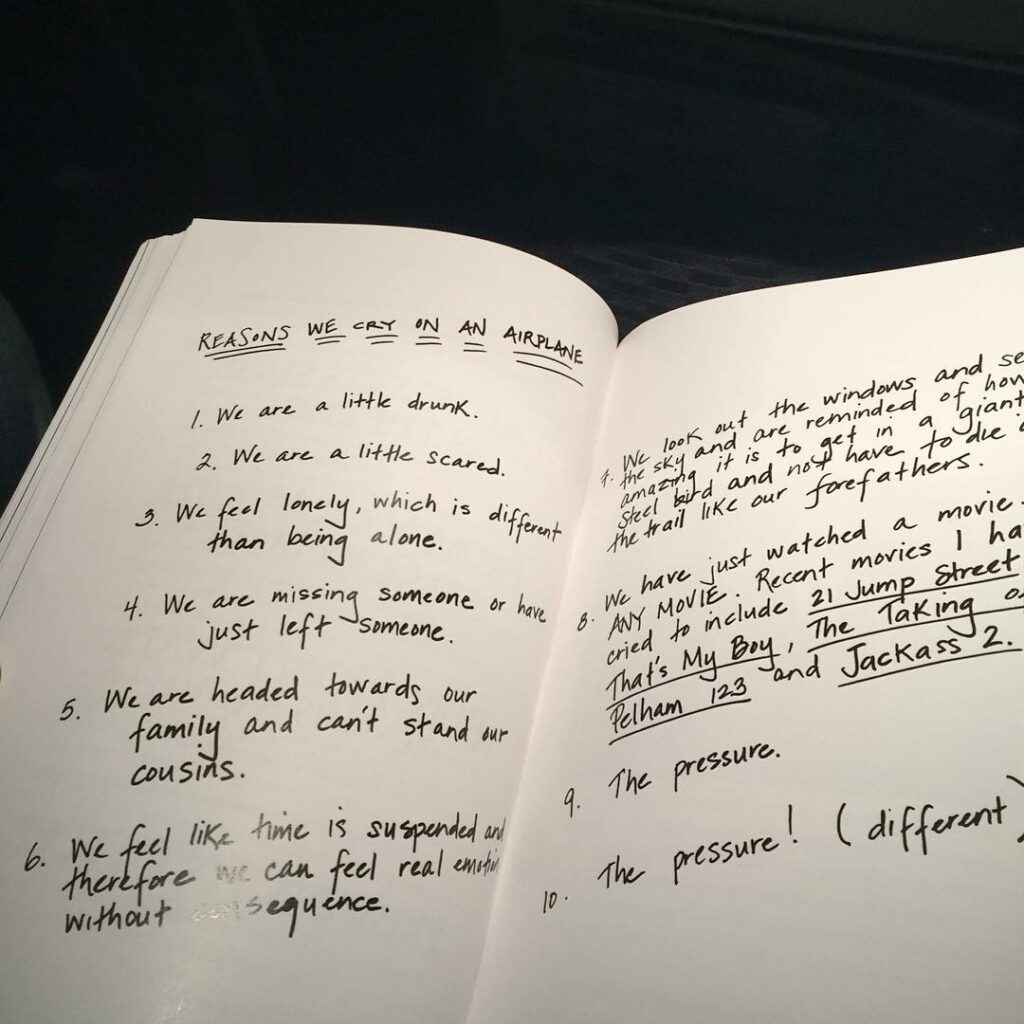 REASONS WE CRY ON AN AIRPLANE
1. We are a little drunk.
2. We are a little scared.
3. We feel lonely, which is different
than being alone.
4. We are missing someone or have
just left someone.
5. We are headed towards our
family and can't stand our
cousins.
6. We feel like time is suspended and
therefore we can feel real emotion
without consequence.
7. We look out the windows and se
the sky and are reminded of how
amazing it is to get in a giant
steel bird and not have to die
the trail like our forefathers.
8. We have just watched a movie.
ANY MOVIE. Recent movies I ha
cried to include 21 Jump Street
That's My Boy, The Taking of
Pelham 123 and Jackass 2.
9. The pressure.
10. The pressure! (different)